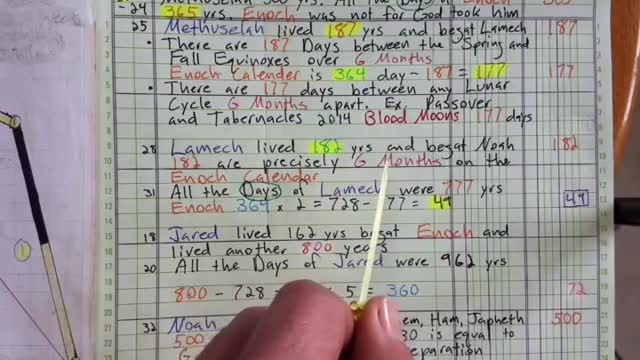 Methuselah 300 yrs. All the Days of Enoch
- 24 365 yrs. Enoch was not for God took him
25 Methuselah lived 187 yrs and begat Lamech 187
• There are 187 Days between the Spring and
Fall Equinoxes over 6 Months
Enoch Calender is 364 day - 187 = 177 177
• There are 177 days between any Lunar
Cycle 6 Months apart. Ex. Passover
and Tabernacles 2014 Blood Moons 177 days
28 Lamech lived 182 yrs and begat Noah 182
182 are precisely 6 Months on the
Enoch Calendar
31 All the Days of Lamech were 777 yrs
Enoch 364 x 2 = 728 - 77 = 49 49
18 Jared lived 162 yrs begat Enoch and
lived another 800 years
20 All the Days of Jared were 962 yrs
800 - 728 5 = 360 72
32 Noah Ham, Japheth 500
500 30 is equal to
6 eparation